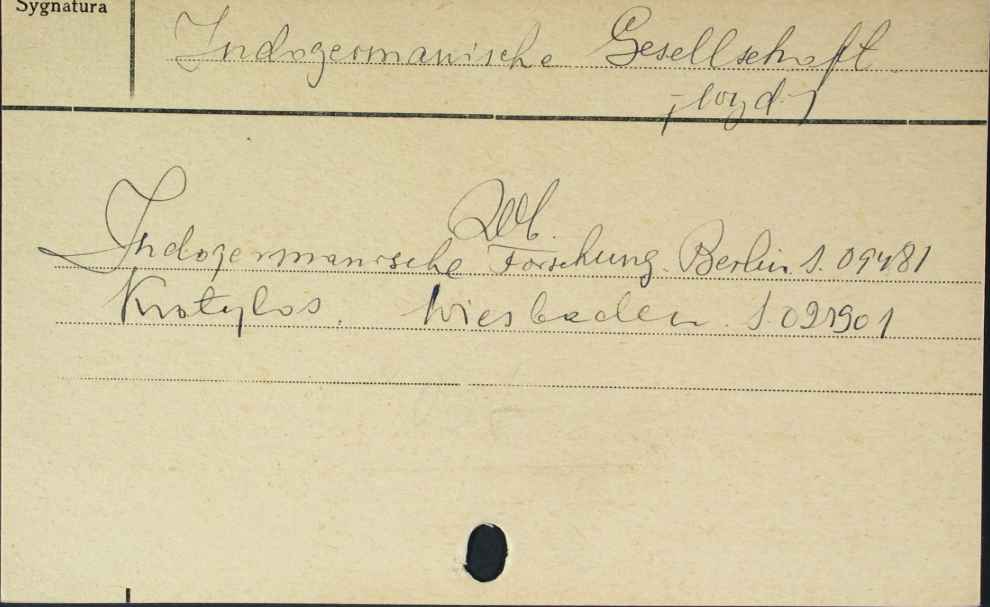 Sygnatura
Indogermanische Gesellschaft
/wyd/
Zob.
Indogermanische Forschung. Berlin S. 09481
Kratylos. Wiesbaden. S. 021901